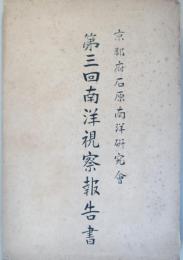 京都府石原南洋研究會
第三回南洋視察報告書